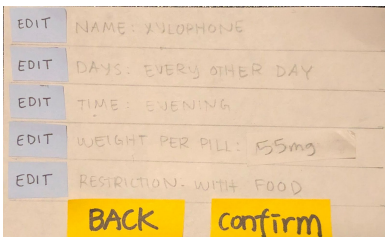 EDIT NAME: XYLOPHONE
EDIT DAYS: EVERY OTHER DAY
EDIT TIME: EVENING
EDIT WEIGHT PER PILL: 55mg
EDIT RESTRICTION: WITH FOOD
BACK Confirm